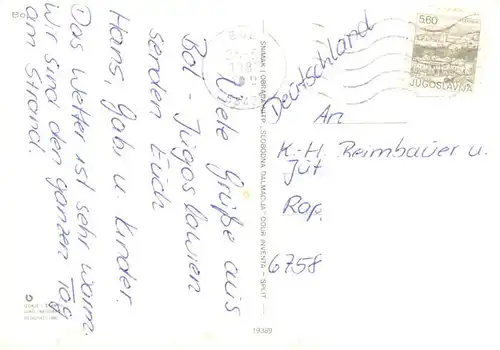 Bol
Viele Grüße aus
Bol - Jugoslawien
senden Euch
Hans, Gabi u. Kinder.
Das Wetter ist sehr warm.
Wir sind den ganzen Tag
am Strand.
SNIMAK I OBRADA: NTP „SLOBODNA DALMACIJA“ OOUR INVENTA - SPLIT
19399
Deutschland
5.60
JUGOSLAVIJA
An
K.-H. Reimbauer u.
Jut
Rap.
6758